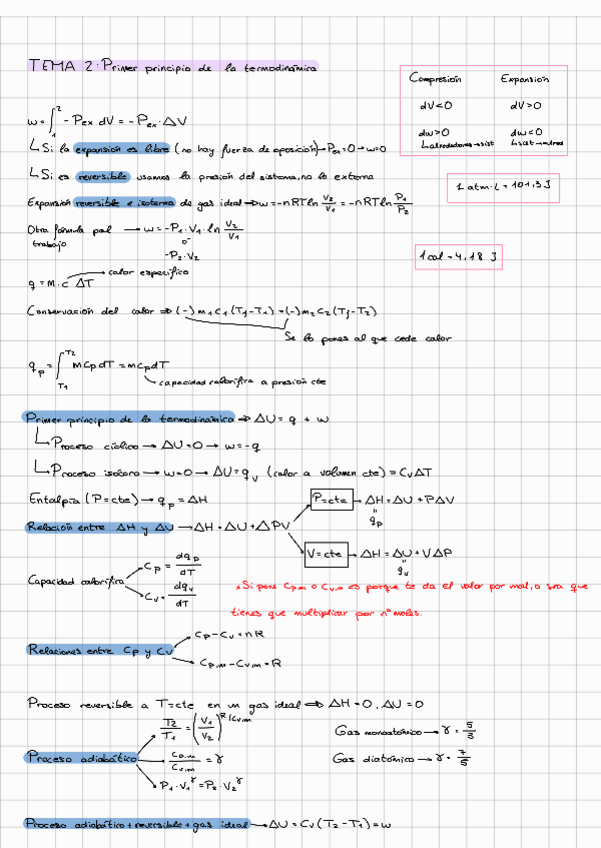 TEMA 2: Primer principio de la termodinámica
Compresión Expansión
dV<0 dV>0
dw>0 dw<0
↳alrededores→sist ↳sist→alred
w=∫₁² -Pex dV = -Pex·ΔV
↳Si la expansión es libre (no hay fuerza de oposición)→Pex=0→w=0
↳Si es reversible usamos la presión del sistema, no la externa
1 atm·L = 101,3 J
Expansión reversible e isoterma de gas ideal⇒w=-nRTln V2/V1 = -nRTln P1/P2
Otra fórmula para → w=-P1·V1·ln V2/V1
trabajo
o
-P2·V2
1 cal = 4,18 J
q = m·c ΔT
calor específico
Conservación del calor ⇒ (-) m1 c1 (Tf-T1) = (-) m2 c2 (Tf-T2)
Se lo pones al que cede calor
qp = ∫T1T2 m cp dT = m cp dT
capacidad calorífica a presión cte
Primer principio de la termodinámica ⇒ ΔU = q + w
↳Proceso cíclico → ΔU=0 → w=-q
↳Proceso isocoro → w=0 → ΔU=qv (calor a volumen cte) = Cv ΔT
Entalpía (P=cte) → qp = ΔH
P=cte → ΔH=ΔU + PΔV
qp
Relación entre ΔH y ΔU → ΔH=ΔU+ΔPV
V=cte → ΔH = ΔU + VΔP
qv
Capacidad calorífica
Cp = dqp/dT
Cv = dqv/dT
*Si pone Cp,m o Cv,m es porque te da el valor por mol, o sea que
tienes que multiplicar por nº moles.
Relaciones entre Cp y Cv
Cp-Cv=nR
Cp,m-Cv,m=R
Proceso reversible a T=cte en un gas ideal ⇒ ΔH=0, ΔU=0
T2/T1 = (V1/V2)^R/Cv,m
Gas monoatómico → γ = 5/3
Proceso adiabático
Cp,m/Cv,m = γ
Gas diatómico → γ = 7/5
P1·V1^γ = P2·V2^γ
Proceso adiabático+reversible+gas ideal → ΔU = Cv (T2-T1) = w